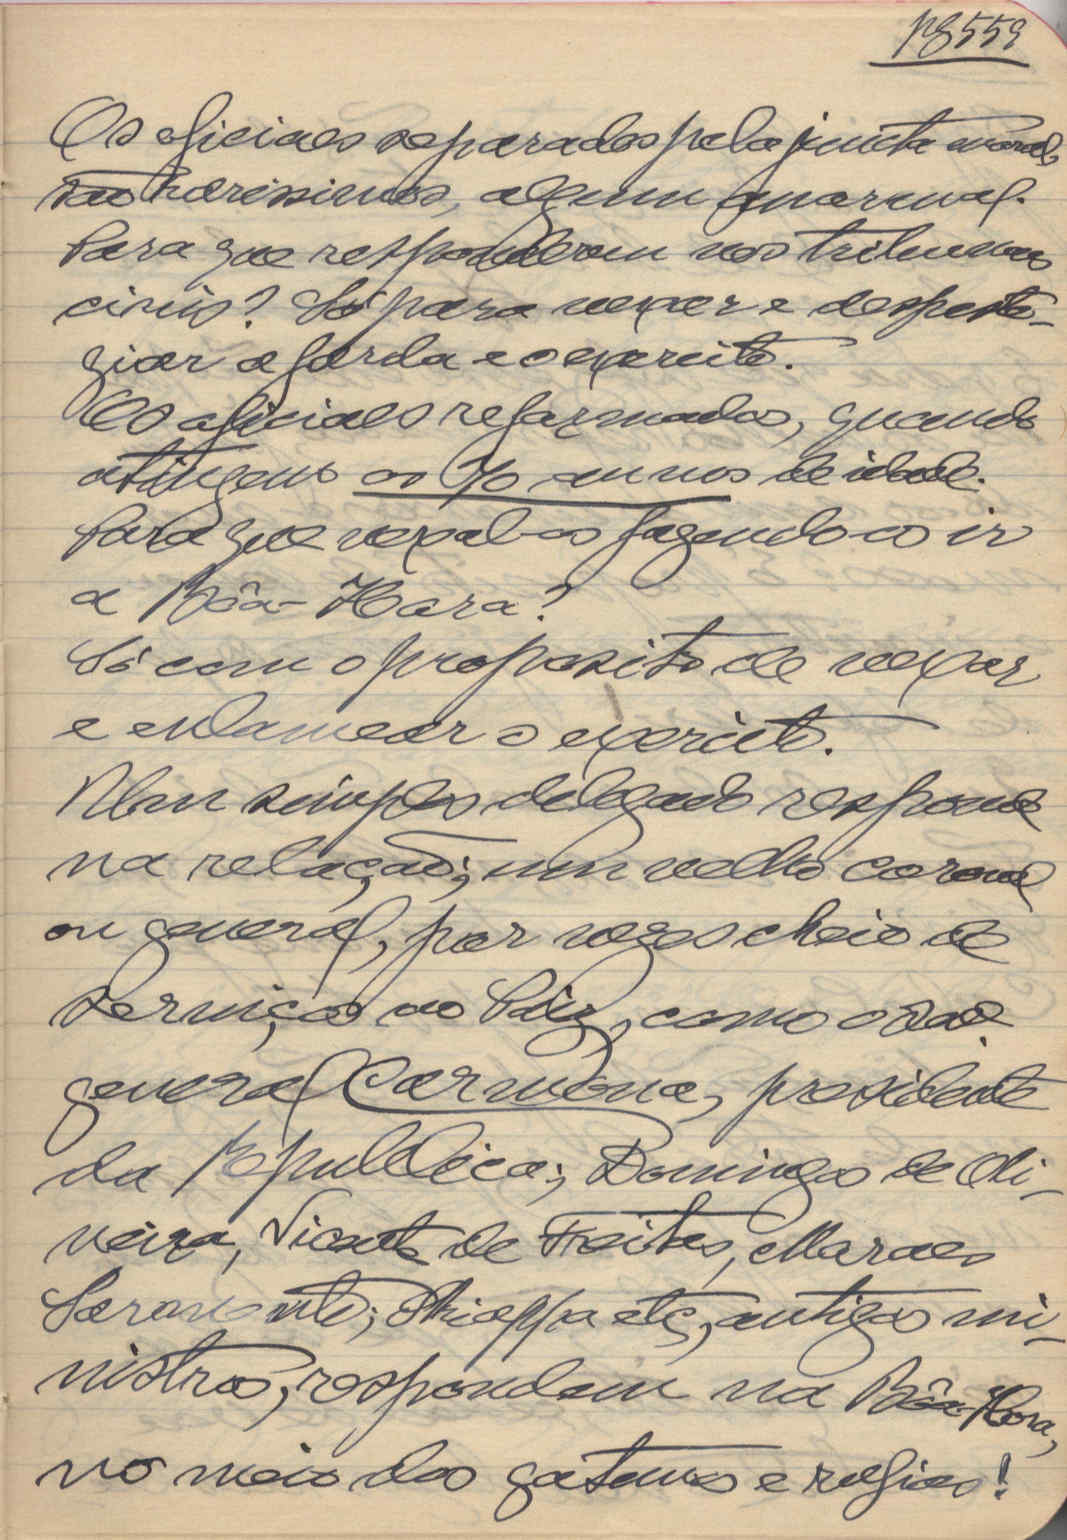 pg 559
Os oficiaes separados pela junta moral
são rarissimos, algum anormal.
Para que responderem nos tribunaes
civis? Só para vexar e despresti-
giar a farda e o exercito.
Os oficiaes reformados, quando
atingem os 70 annos de idade.
Para que vexal-os fazendo-os ir
a Bôa-Hora?
Só com o proposito de vexar
e enlamear o exercito.
Um simples delegado responde
na relação; um velho coronel
ou general, por vezes cheio de
serviços ao Paiz, como o são
general Carmona, presidente
da Republica; Domingos de Oli-
veira, Vicente de Freitas, Moraes
Sarmento; Schiappa etc, antigos mi-
nistros, respondem na Bôa-Hora,
no meio dos gatunos e rufias!